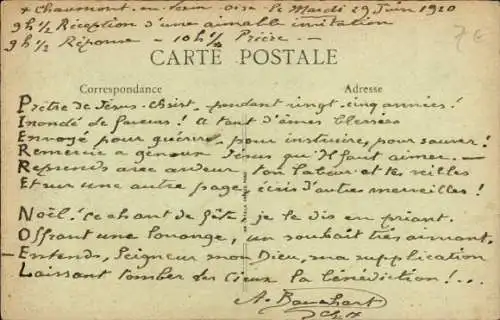 + Chaumont-en- oise le Mardi 29 Juin 1920
9h 1/2 Réception d'une aimable invitation
9h 1/2 Réponse - 10h 1/4 Prière -
7€
CARTE POSTALE
Correspondance
Adresse
Prêtre de Jésus-Christ, pendant vingt-cinq années!
Inondé de faveurs! A tant d'âmes blessées
Envoyé pour guérir, pour instruire, pour sauver!
Remercie à genoux Jésus qu'Il faut aimer. -
Reprends avec ardeur ton labeur et tes veilles
Et sur une autre page, écris d'autres merveilles!
Noël! Ce chant de fête, je le dis en priant.
Offrant une louange, un souhait très aimant,
Entends, Seigneur mon Dieu, ma supplication
Laissant tomber des Cieux la bénédiction!...
A.